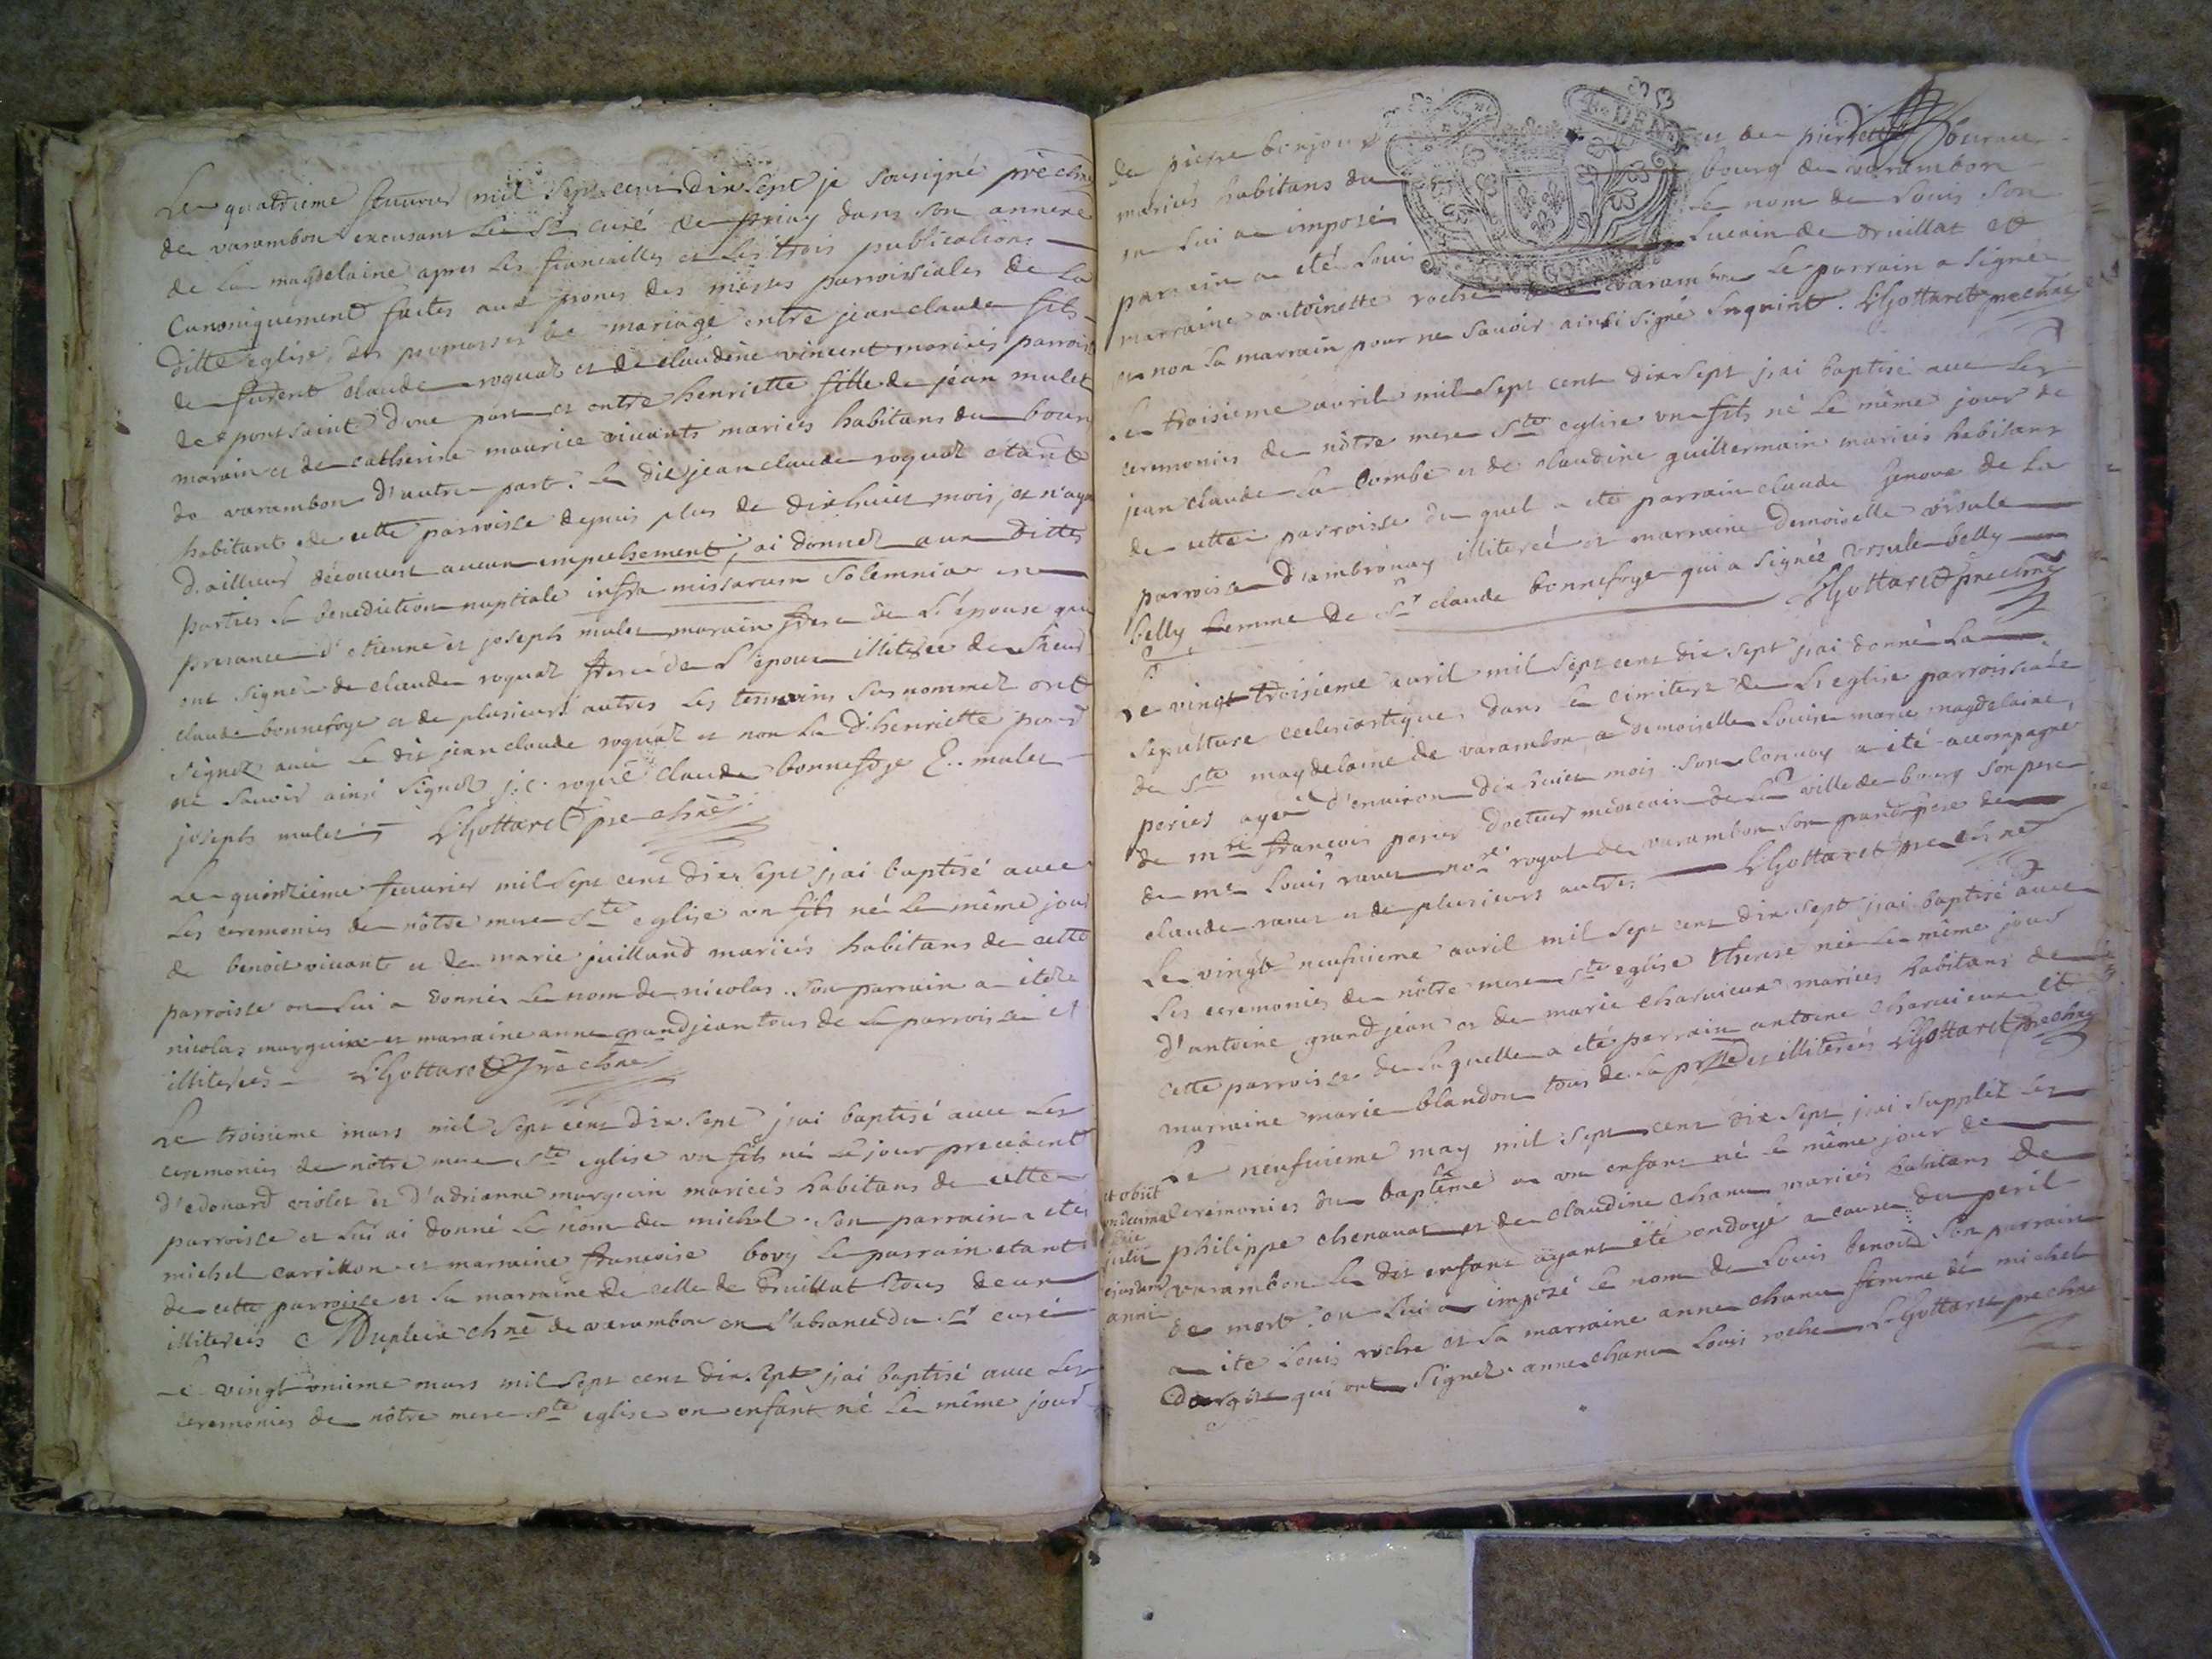 Le quatrieme feuvrier mil sept cent dix sept je sousigné prechne
de varambon excusant le Sr curé de priay dans son annexe
de la magdelaine apres les fiancailles et les trois publications
Canoniquement faites aux prones des messes parroissiales de La
ditte eglise, des promesses de mariage entre jean claude fils
de furent claude roquaz et de claudine vincent mariés parroisse
de pontsaint d'une part et entre henriette fille de jean mulet
morain et de catherine maurice vivants mariés habitans du bourg
de varambon d'autre part. Le dit jean claude roquaz etant
habitant de cette parroisse depuis plus de dix huict mois, et n'ayant
d'ailleurs découvert aucun empechement j'ai donnez aux dittes
parties la benediction nuptiale infra missarum solemnia en
presance d'etienne et joseph mulet morain frere de L'épouse qui
ont signé de claude roquaz frere de L'epoux illiteree de sieur
claude bonnefoye et de plusieurs autres les temoins susnommez ont
signez avec Le dit jean claude roquaz et non la d. henriette pour
ne savoir ainsi signez j. c. roque claude bonnefoye E.. mulet
joseph mulet LGottaret pre chne
Le quinzieme feuvrier mil sept cent dix sept j'ai baptisé avec
Les ceremonies de nôtre mere Ste eglise un fils né le même jour
de benoit vivant et de marie juilland mariés habitans de cette
parroisse on lui a donné le nom de nicolas. son parrain a été
nicolas marguin et marraine anne grandjean tous de la parroisse et
illiterés LGottaret pre chne
Le troisieme mars mil sept cent dix sept j'ai baptisé avec Les
ceremonies de nôtre mere Ste eglise un fils né le jour precedent
d'edouard violet et d'adrianne marguin mariés habitans de cette
parroisse et lui ai donné le nom de michel. son parrain a eté
michel carrillon et marraine francoise bovy le parrain etant
de cette parroisse et la marraine de celle de druillat tous deux
illiterés Dupleix chne de varambon en l'absance du Sr curé
Le vingt onieme mars mil sept cent dix sept j'ai baptisé avec Les
ceremonies de nôtre mere Ste eglise un enfant né le même jour
de pierre bonjour et de pierrette
mariés habitans du bourg de varambon
on lui a imposé le nom de Louis son
parrain a eté Louis Lucain de druillat et
marraine antoinette roche de varambon Le parrain a signé
et non la marraine pour ne savoir ainsi signé LGottaret prechne
Le troisieme avril mil sept cent dix sept j'ai baptisé avec Les
ceremonies de nôtre mere Ste eglise un fils né le même jour de
jean claude la Combe et de claudine guillermain mariés habitans
de cette parroisse du quel a eté parrain claude genoux de la
parroisse d'ambronay illiteré et marraine demoiselle ursule
belly femme de Sr claude bonnefoye qui a signé ursule belly
LGottaret prechne
Le vingt troisieme avril mil sept cent dix sept j'ai donné la
sepulture ecclesiastique dans le cimitere de L'eglise parroissiale
de Ste magdelaine de varambon a demoiselle Louise marie magdelaine
perier agée d'environ dix huict mois son convoy a été accompagné
de mre francois perier docteur medecain de la ville de bourg son pere
de me Louis ravet nore royal de varambon son grand pere de
claude ravet et de plusieurs autres LGottaret pre chne
Le vingt neufvieme avril mil sept cent dix sept j'ai baptisé avec
Les ceremonies de nôtre mere Ste eglise therese née le même jour
d'antoine grandjean et de marie charvieux mariés habitans de
cette parroisse de laquelle a eté parrain antoine charvieux et
marraine marie blandon tous de la prsse et illiterés LGottaret prechne
Le neufvieme may mil sept cent dix sept j'ai supplée les
ceremonies du baptême a un enfant né le même jour de
philippe chenavat et de claudine chanu mariés habitans de
varambon le dit enfant ayant été ondoyé a cause du peril
de mort. on lui a imposé le nom de Louis benoit son parrain
a ité Louis roche et la marraine anne chanu femme de michel
qui ont signez anne chanu Louis roche LGottaret prechne
et obiit
undecima
die
julii
ejusdem
anni